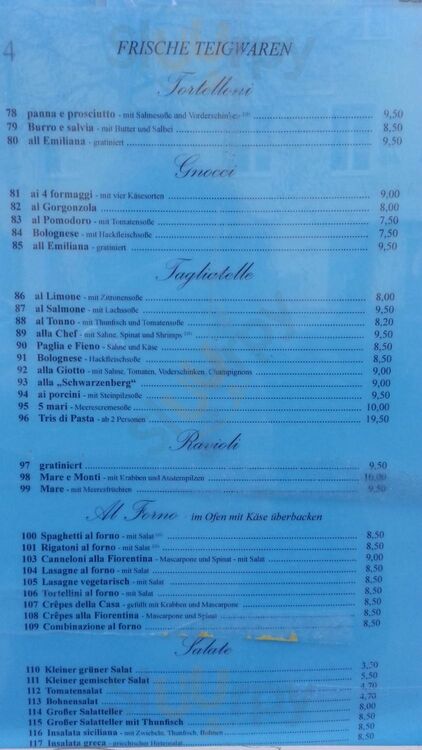 4
FRISCHE TEIGWAREN
Tortelloni
78 panna e prosciutto - mit Sahnesoße und Vorderschinken 9,50
79 Burro e salvia - mit Butter und Salbei 8,50
80 all Emiliana - gratiniert 9,50
Gnocci
81 ai 4 formaggi - mit vier Käsesorten 9,00
82 al Gorgonzola 8,00
83 al Pomodoro - mit Tomatensoße 7,50
84 Bolognese - mit Hackfleischsoße 7,50
85 all Emiliana - gratiniert 9,50
Tagliatelle
86 al Limone - mit Zitronensoße 8,00
87 al Salmone - mit Lachssoße 9,50
88 al Tonno - mit Thunfisch und Tomatensoße 8,20
89 alla Chef - mit Sahne, Spinat und Shrimps 9,50
90 Paglia e Fieno - Sahne und Käse 8,50
91 Bolognese - Hackfleischsoße 8,50
92 alla Giotto - mit Sahne, Tomaten, Voderschinken, Champignons 9,00
93 alla „Schwarzenberg“ 9,00
94 ai porcini - mit Steinpilzsoße 9,00
95 5 mari - Meerescremesoße 10,00
96 Tris di Pasta - ab 2 Personen 19,50
Ravioli
97 gratiniert 9,50
98 Mare e Monti - mit Krabben und Austernpilzen 10,00
99 Mare - mit Meeresfrüchten 9,50
Al Forno im Ofen mit Käse überbacken
100 Spaghetti al forno - mit Salat 8,50
101 Rigatoni al forno - mit Salat 8,50
103 Canneloni alla Fiorentina - Mascarpone und Spinat - mit Salat 9,00
104 Lasagne al forno - mit Salat 8,50
105 Lasagne vegetarisch - mit Salat 8,50
106 Tortellini al forno - mit Salat 8,50
107 Crêpes della Casa - gefüllt mit Krabben und Mascarpone 8,50
108 Crêpes alla Fiorentina - Mascarpone und Spinat 8,50
109 Combinazione al forno 8,50
Salate
110 Kleiner grüner Salat 3,50
111 Kleiner gemischter Salat 5,50
112 Tomatensalat 4,70
113 Bohnensalat 4,70
114 Großer Salatteller 8,00
115 Großer Salatteller mit Thunfisch 8,50
116 Insalata siciliana - mit Zwiebeln, Thunfisch, Bohnen 8,50
117 Insalata greca - griechischer Hirtensalat 8,50